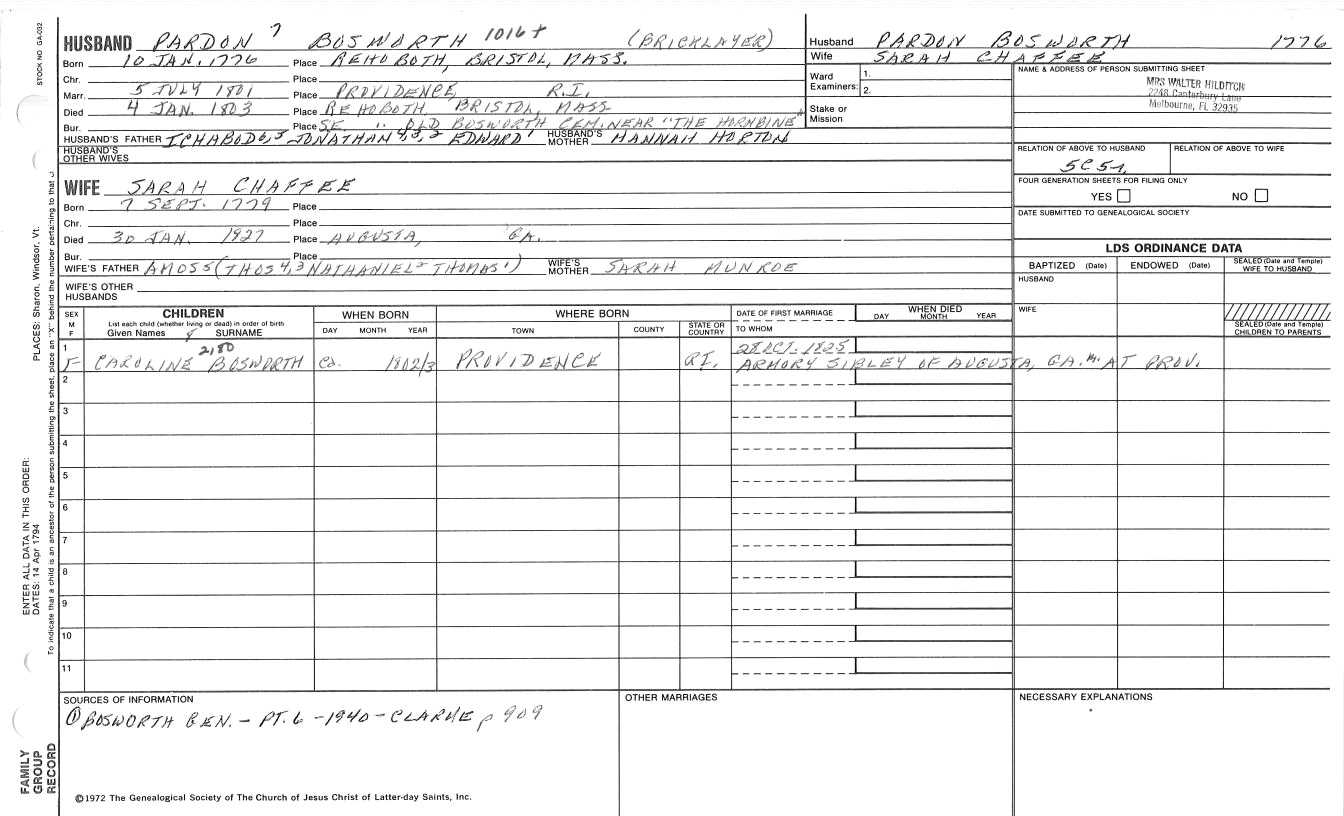 STOCK NO. GA-032
HUSBAND PARDON 7 BOSWORTH 1016+ (BRICKLAYER)
Born 10 JAN. 1776 Place REHOBOTH, BRISTOL, MASS.
Chr. Place
Marr. 5 JULY 1801 Place PROVIDENCE, R.I.
Died 4 JAN. 1803 Place REHOBOTH BRISTOL, MASS
Bur. Place SE. " OLD BOSWORTH CEM. NEAR "THE HORNBINE"
HUSBAND'S FATHER ICHABOD 6,5 JONATHAN 4,3,2 EDWARD 1 HUSBAND'S MOTHER HANNAH HORTON
HUSBAND'S OTHER WIVES
Husband PARDON BOSWORTH 1776
Wife SARAH CHAFFEE
Ward Examiners: 1. 2.
Stake or Mission
NAME & ADDRESS OF PERSON SUBMITTING SHEET
MRS WALTER HILDITCH
2248 Canterbury Lane
Melbourne, FL 32935
RELATION OF ABOVE TO HUSBAND RELATION OF ABOVE TO WIFE
5C5r.
FOUR GENERATION SHEETS FOR FILING ONLY
YES NO
DATE SUBMITTED TO GENEALOGICAL SOCIETY
WIFE SARAH CHAFFEE
Born 7 SEPT. 1779 Place
Chr. Place
Died 30 JAN. 1827 Place AUGUSTA, GA.
Bur. Place
WIFE'S FATHER AMOS 5 (THOS 4,3 NATHANIEL 2 THOMAS 1) WIFE'S MOTHER SARAH MUNROE
WIFE'S OTHER HUSBANDS
LDS ORDINANCE DATA
BAPTIZED (Date) ENDOWED (Date) SEALED (Date and Temple) WIFE TO HUSBAND
HUSBAND
WIFE
SEALED (Date and Temple) CHILDREN TO PARENTS
SEX M F
CHILDREN
List each child (whether living or dead) in order of birth
Given Names SURNAME
WHEN BORN
DAY MONTH YEAR
WHERE BORN
TOWN COUNTY STATE OR COUNTRY
DATE OF FIRST MARRIAGE
TO WHOM
WHEN DIED
DAY MONTH YEAR
1 F CAROLINE 8 BOSWORTH 2180 Ca. 1802/3 PROVIDENCE RI. 28 OCT. 1825
ARMORY SIBLEY OF AUGUSTA, GA. m. AT PROV.
2
3
4
5
6
7
8
9
10
11
SOURCES OF INFORMATION
① BOSWORTH GEN. - PT. 6 - 1940 - CLARKE p 909
OTHER MARRIAGES
NECESSARY EXPLANATIONS
©1972 The Genealogical Society of The Church of Jesus Christ of Latter-day Saints, Inc.
PLACES: Sharon, Windsor, Vt.
ENTER ALL DATA IN THIS ORDER:
DATES: 14 Apr 1794
To indicate that a child is an ancestor of the person submitting the sheet, place an "X" behind the number pertaining to that
FAMILY GROUP RECORD